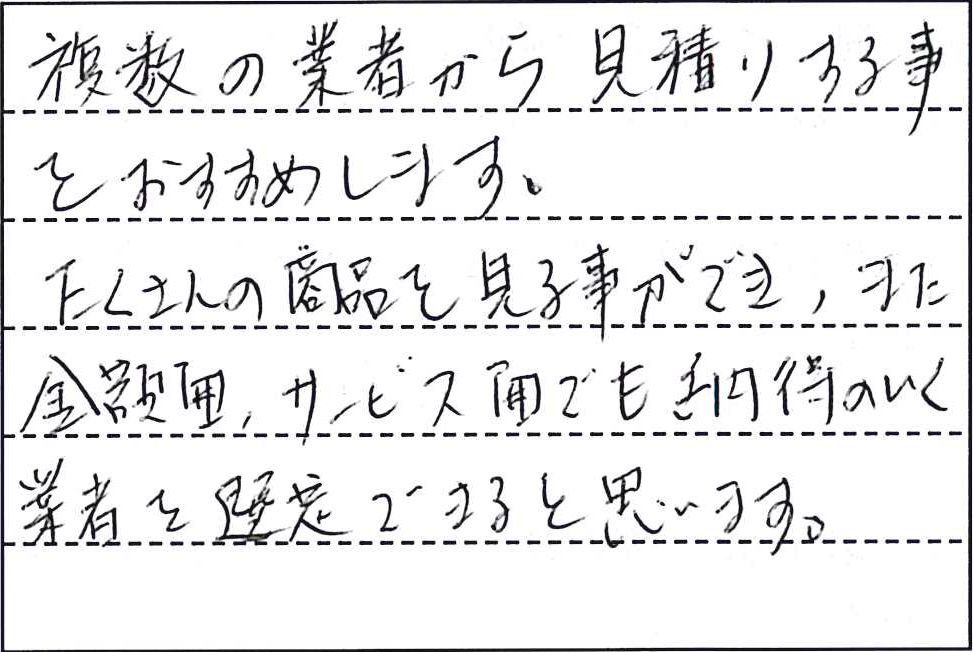 複数の業者から見積りする事
をおすすめします。
たくさんの商品を見る事ができ,また
金額面,サービス面でも納得のいく
業者を選定できると思います。